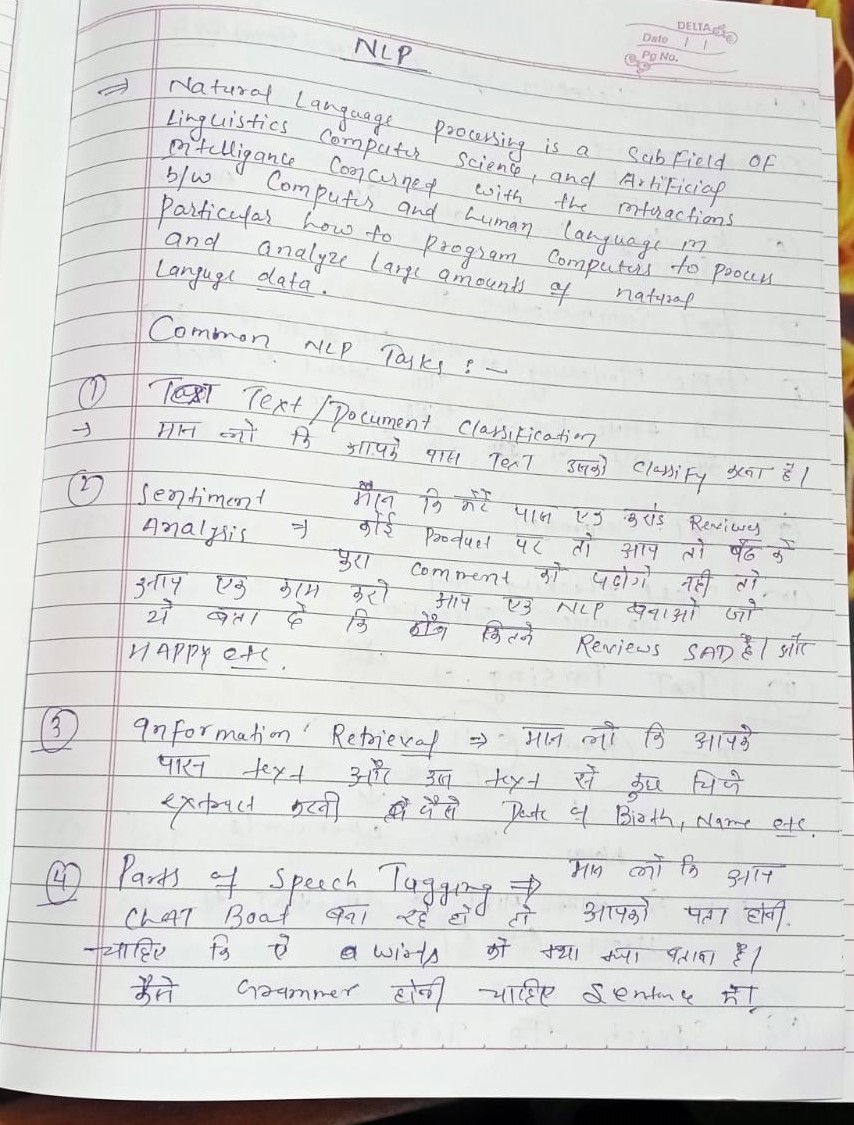 DELTA
Date / /
Pg No.
NLP
⇒ Natural Language Processing is a Sub Field OF
Linguistics Computer Science, and Artificial
Intelligance Concerned with the interactions
b/w Computer and human language in
particular how to program Computers to process
and analyze large amounts of natural
Languge data.
Common NLP Tasks :-
① Text / Document Classification
→ मान लो कि आपके पास Text उसको Classify करना है।
② Sentiment मान कि मेरे पास एक करोड़ Reviews
Analysis ⇒ कोई Product पर तो आप तो बैठ के
पुरा comment को पढ़ोगे नही तो
आप एक काम करो आप एक NLP बनाओ जो
ये बता दे कि कितने Reviews SAD है। और
HAPPY etc.
③ Information Retrieval ⇒ मान लो कि आपके
पास text और उस text से कुछ चिजे
extract करनी है जैसे Date of Birth, Name etc.
④ Parts of Speech Tagging ⇒ मान लो कि आप
CHAT Boat बना रहे हो तो आपको पता होनी
चाहिए कि ऐ words को क्या क्या बताना है।
कैसे Grammer होनी चाहिए Sentence में।